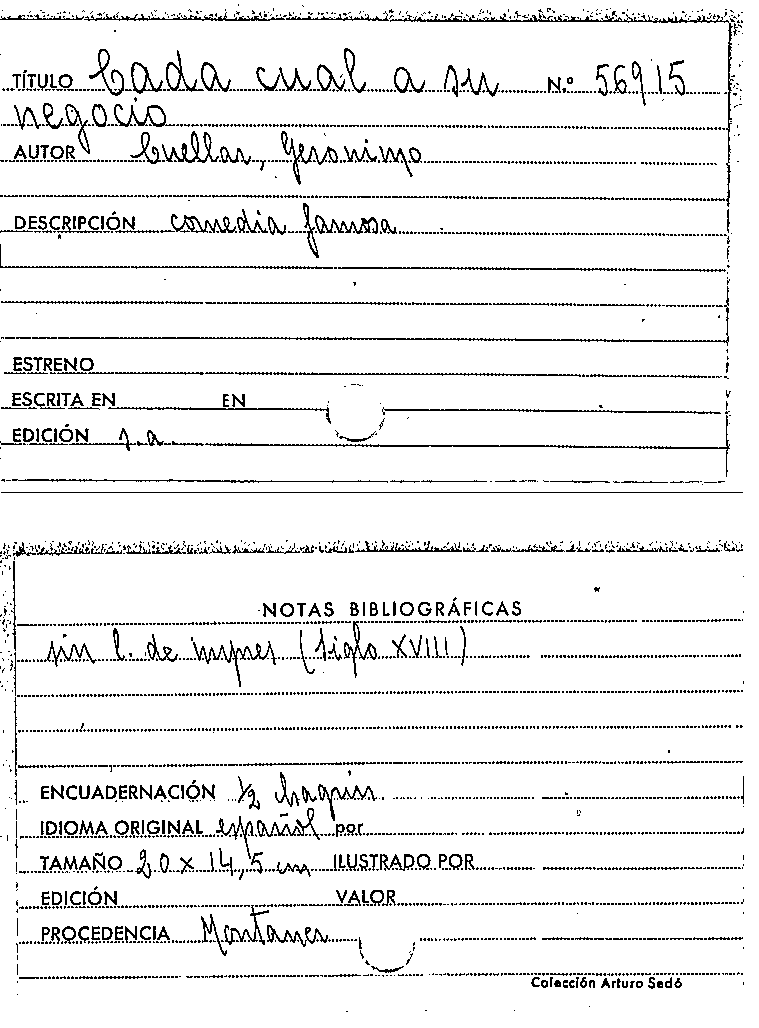 TÍTULO Cada cual a su N.º 56915
negocio
AUTOR Cuellar, Geronimo
DESCRIPCIÓN comedia famosa
ESTRENO
ESCRITA EN EN
EDICIÓN s.a.
NOTAS BIBLIOGRÁFICAS
sin l. de impres (siglo XVIII)
ENCUADERNACIÓN ½ chagrín
IDIOMA ORIGINAL español por
TAMAÑO 20 x 14,5 cm ILUSTRADO POR
EDICIÓN VALOR
PROCEDENCIA Montaner
Colección Arturo Sedó